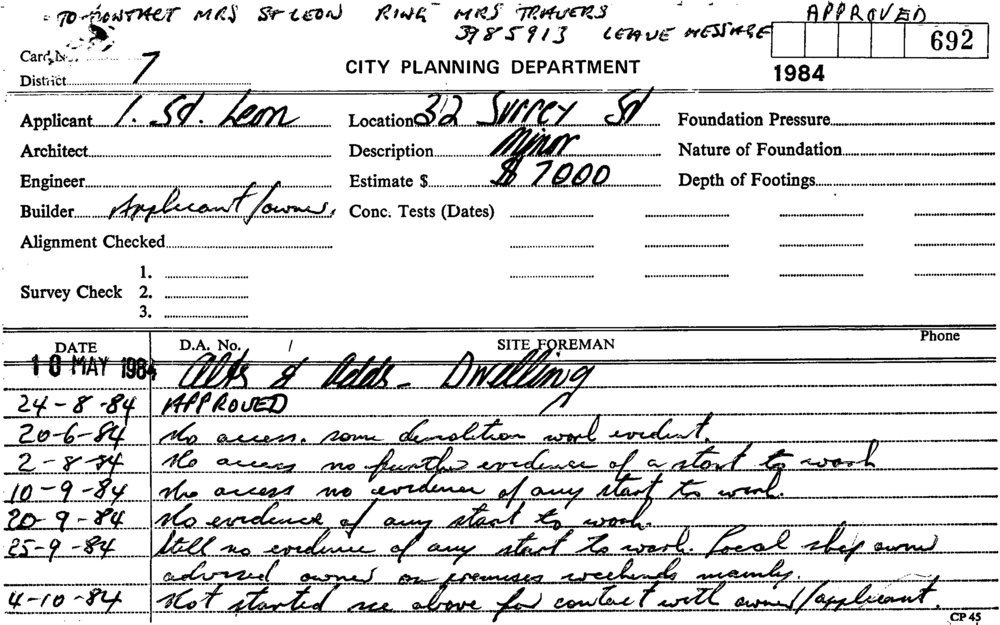 TO CONTACT MRS ST LEON RING MRS TRAVERS APPROVED
3985913 LEAVE MESSAGE
692
Card No.
District 7 CITY PLANNING DEPARTMENT 1984
Applicant I. St. Leon Location 32 Surrey St Foundation Pressure
Architect Description Minor Nature of Foundation
Engineer Estimate $ $ 7000 Depth of Footings
Builder Applicant/owner. Conc. Tests (Dates)
Alignment Checked
1.
Survey Check 2.
3.
DATE D.A. No. / SITE FOREMAN Phone
10 MAY 1984 Alts & Adds - Dwelling
24-8-84 APPROVED
20-6-84 No access. some demolition work evident.
2-8-84 No access no further evidence of a start to work
10-9-84 No access no evidence of any start to work.
20-9-84 No evidence of any start to work.
25-9-84 Still no evidence of any start to work. Local shop owner
advised owner on premises weekends mainly.
4-10-84 Not started see above for contact with owner/applicant.
CP 45